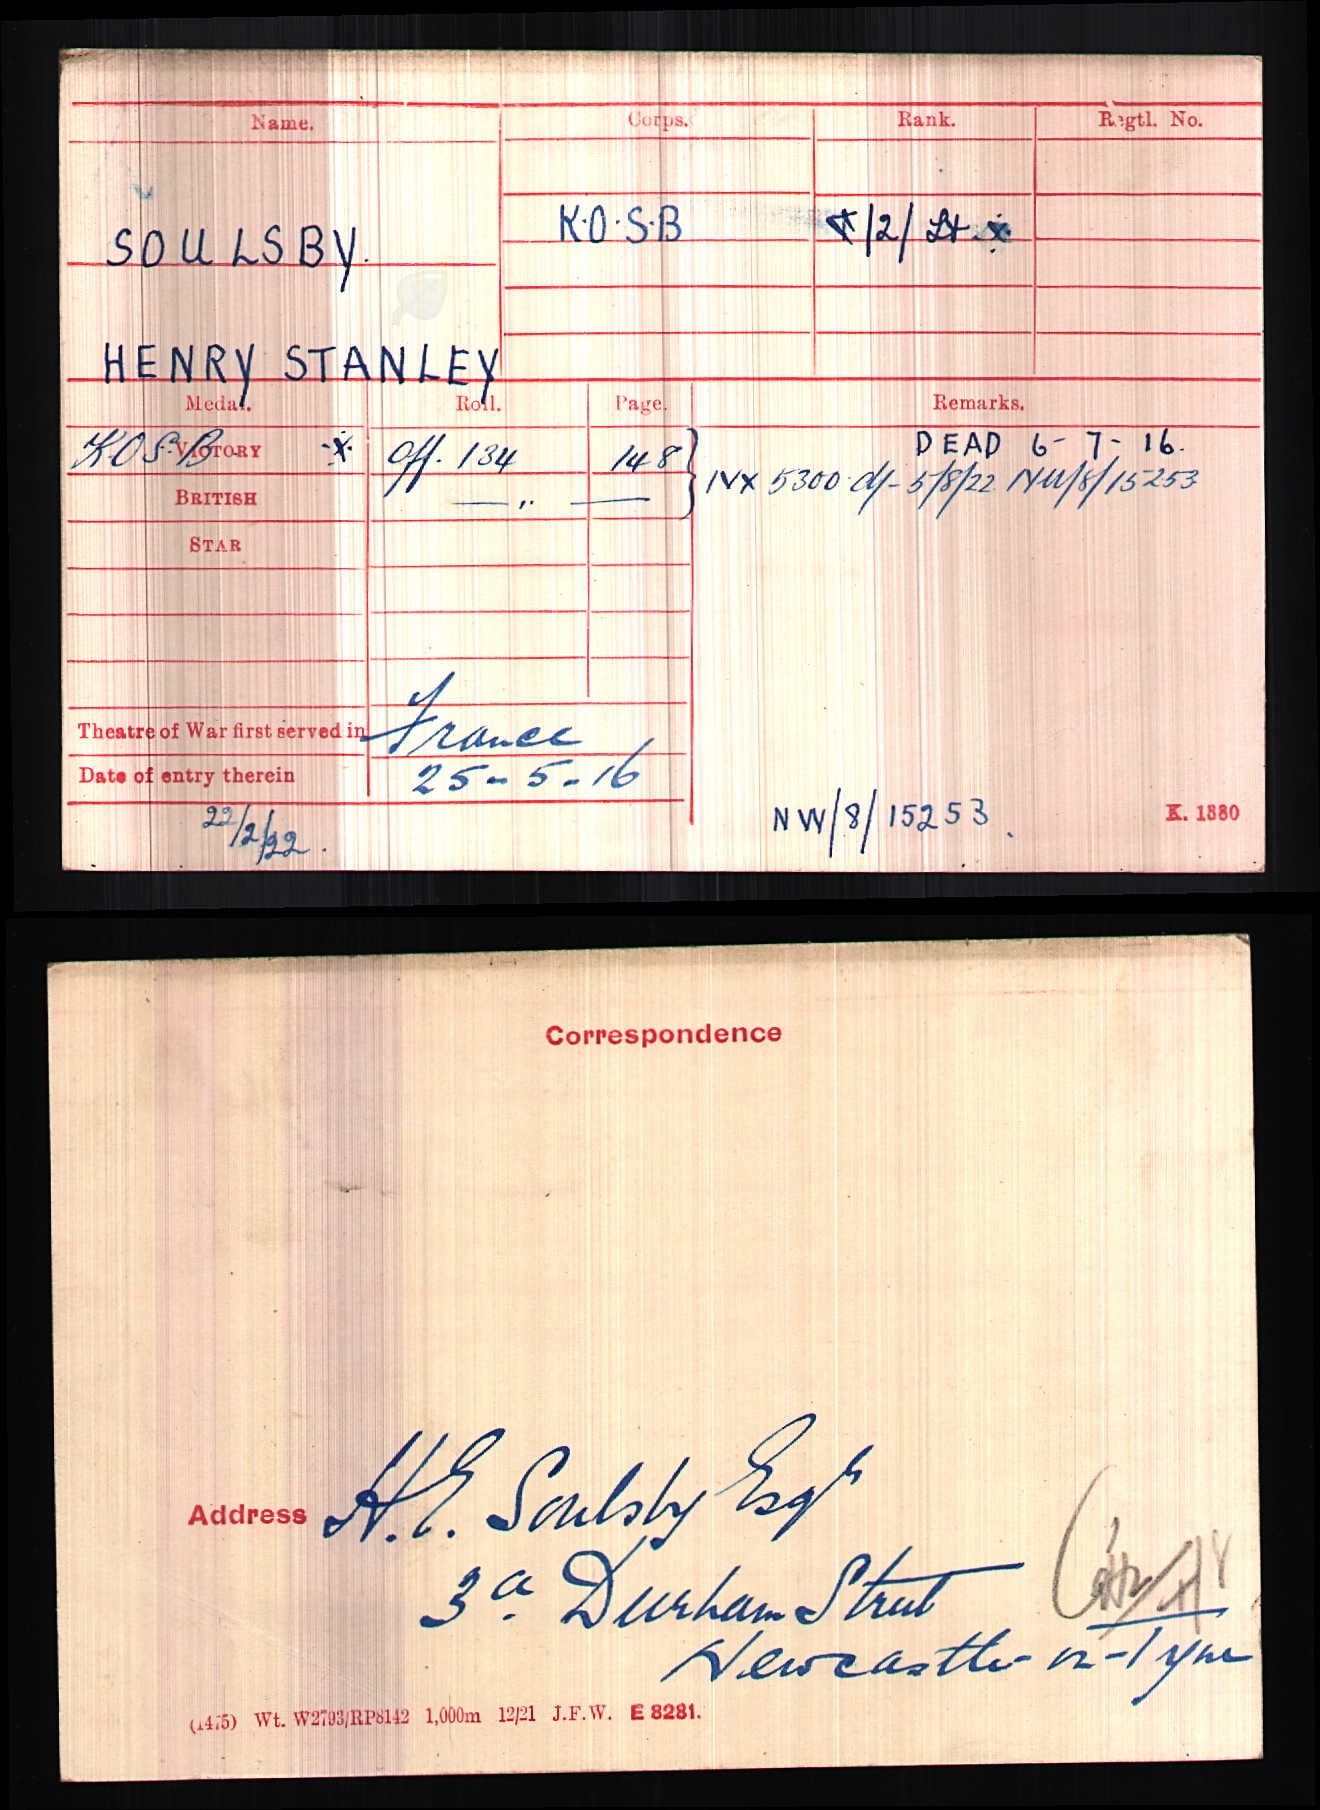 Name. Corps. Rank. Regtl. No.
SOULSBY. K.O.S.B */2/Lt *
HENRY STANLEY
Medal. Roll. Page. Remarks.
DEAD 6-7-16.
K.O.S.B VICTORY * Off. 134 148
BRITISH — „ — IVX 5300 d/- 5/8/22 NW/8/15253
STAR
Theatre of War first served in France
Date of entry therein 25-5-16
22/2/22. NW/8/15253. K. 1380
Correspondence
Address H.E. Soulsby Esqr
3a. Durham Street
Newcastle-on-Tyne
(1475) Wt. W2793/RP8142 1,000m 12/21 J.F.W. E 8281.